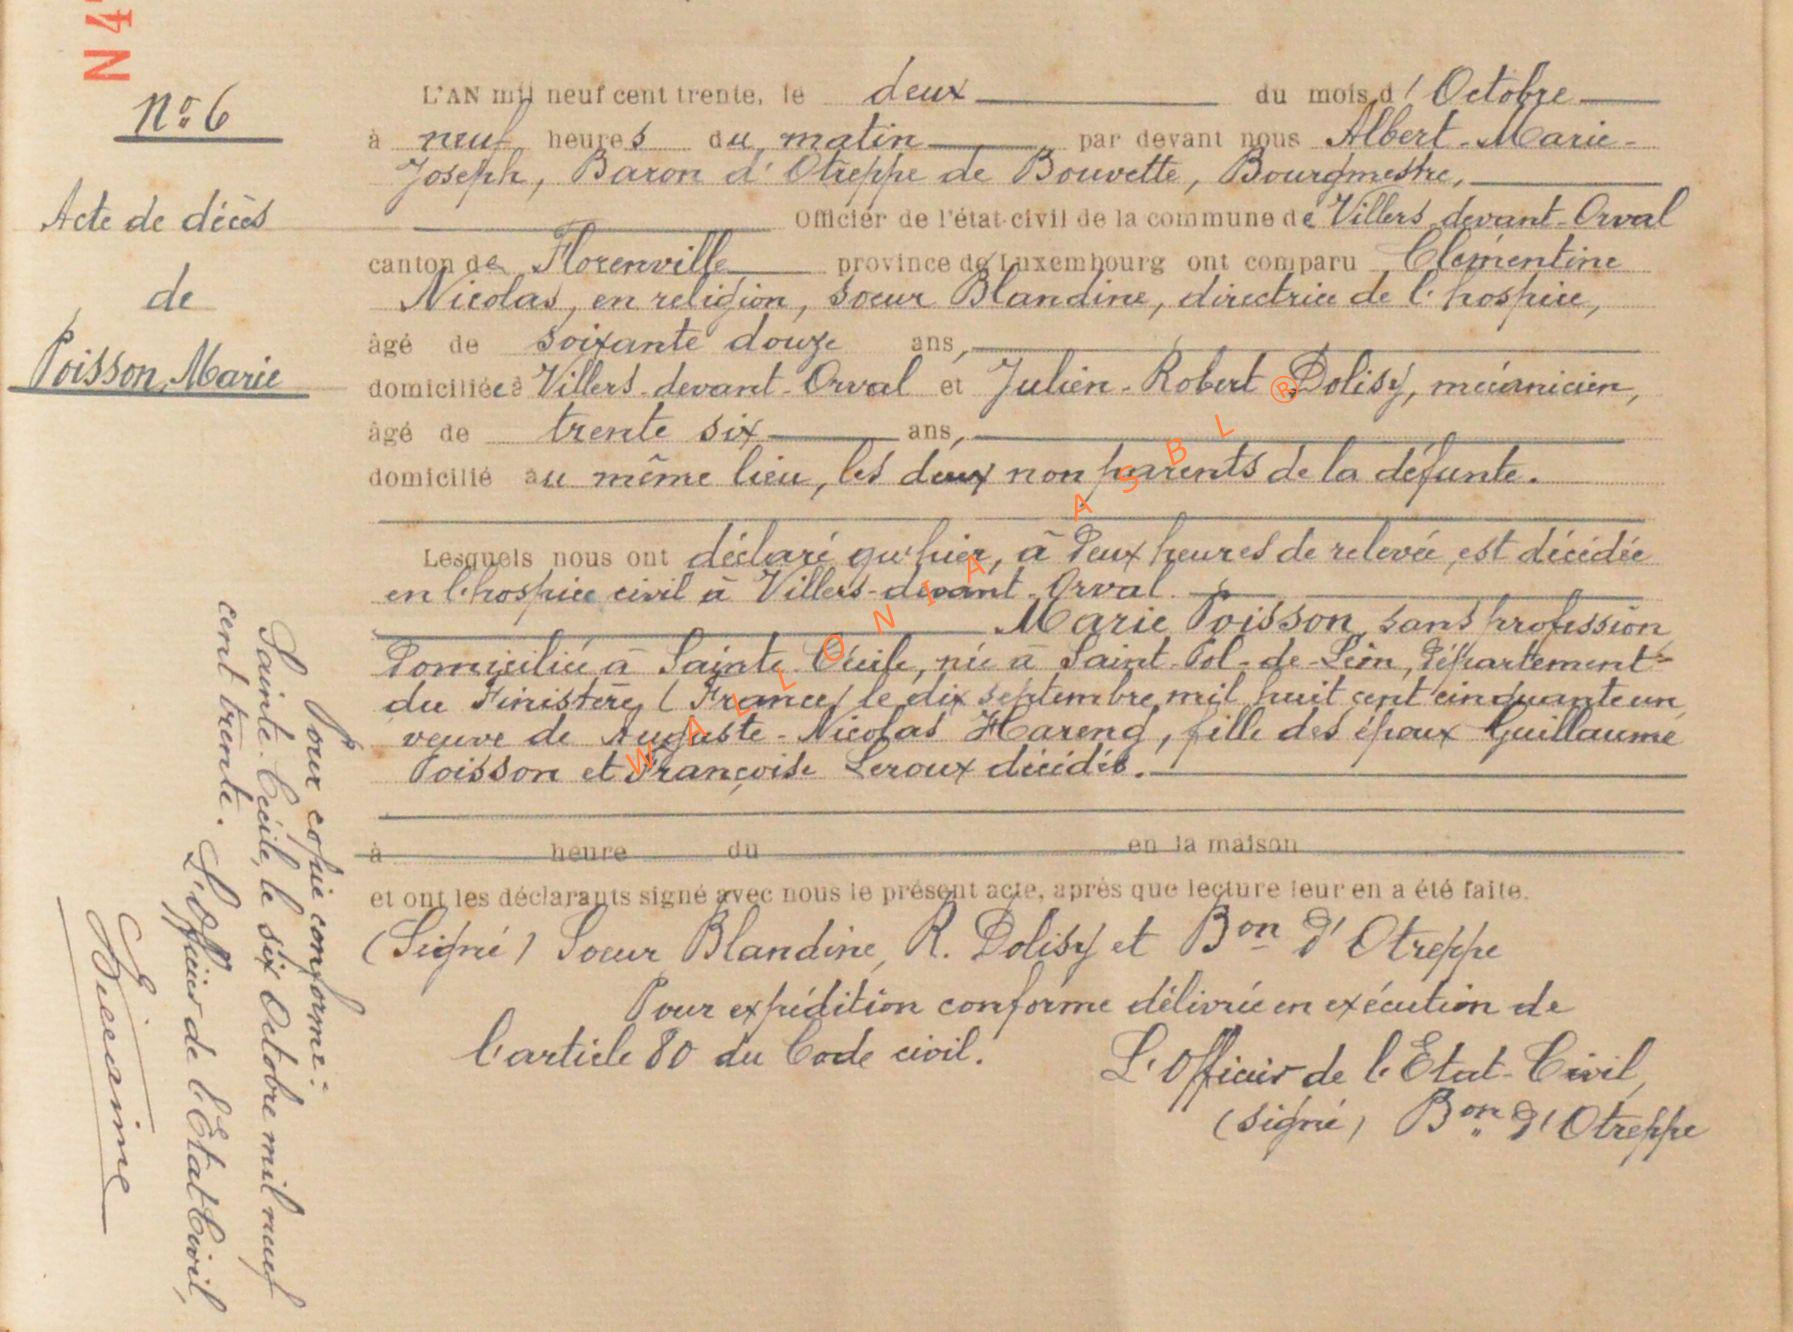 N 4
No 6
Acte de décès
de
Poisson, Marie
L'AN mil neuf cent trente, le deux du mois d' Octobre
à neuf heures du matin par devant nous Albert-Marie-
Joseph, Baron d'Otreppe de Bouvette, Bourgmestre,
Officier de l'état-civil de la commune de Villers-devant-Orval
canton de Florenville province de Luxembourg ont comparu Clémentine
Nicolas, en religion, soeur Blandine, directrice de l'hospice,
âgé de soixante douze ans,
domiciliée à Villers-devant-Orval et Julien-Robert Dolisy, mécanicien,
âgé de trente six ans,
domicilié au même lieu, les deux non parents de la défunte.
Lesquels nous ont déclaré qu'hier, à deux heures de relevée, est décédée
en l'hospice civil à Villers-devant-Orval.
Marie Poisson, sans profession
domiciliée à Sainte-Cécile, née à Saint-Pol-de-Léon, département
du Finistère (France) le dix septembre mil huit cent cinquante un,
veuve de Auguste-Nicolas Hareng, fille des époux Guillaume
Poisson et Françoise Leroux décédés.
à heure du en la maison
et ont les déclarants signé avec nous le présent acte, après que lecture leur en a été faite.
(Signé) Soeur Blandine, R. Dolisy et Bon d'Otreppe
Pour expédition conforme délivrée en exécution de
l'article 80 du Code civil.
L'Officier de l'Etat-Civil,
(signé) Bon d'Otreppe
Pour copie conforme:
Sainte-Cécile, le six Octobre mil neuf
cent trente.
L'Officier de l'Etat Civil,
WALLONIA ASBL ®